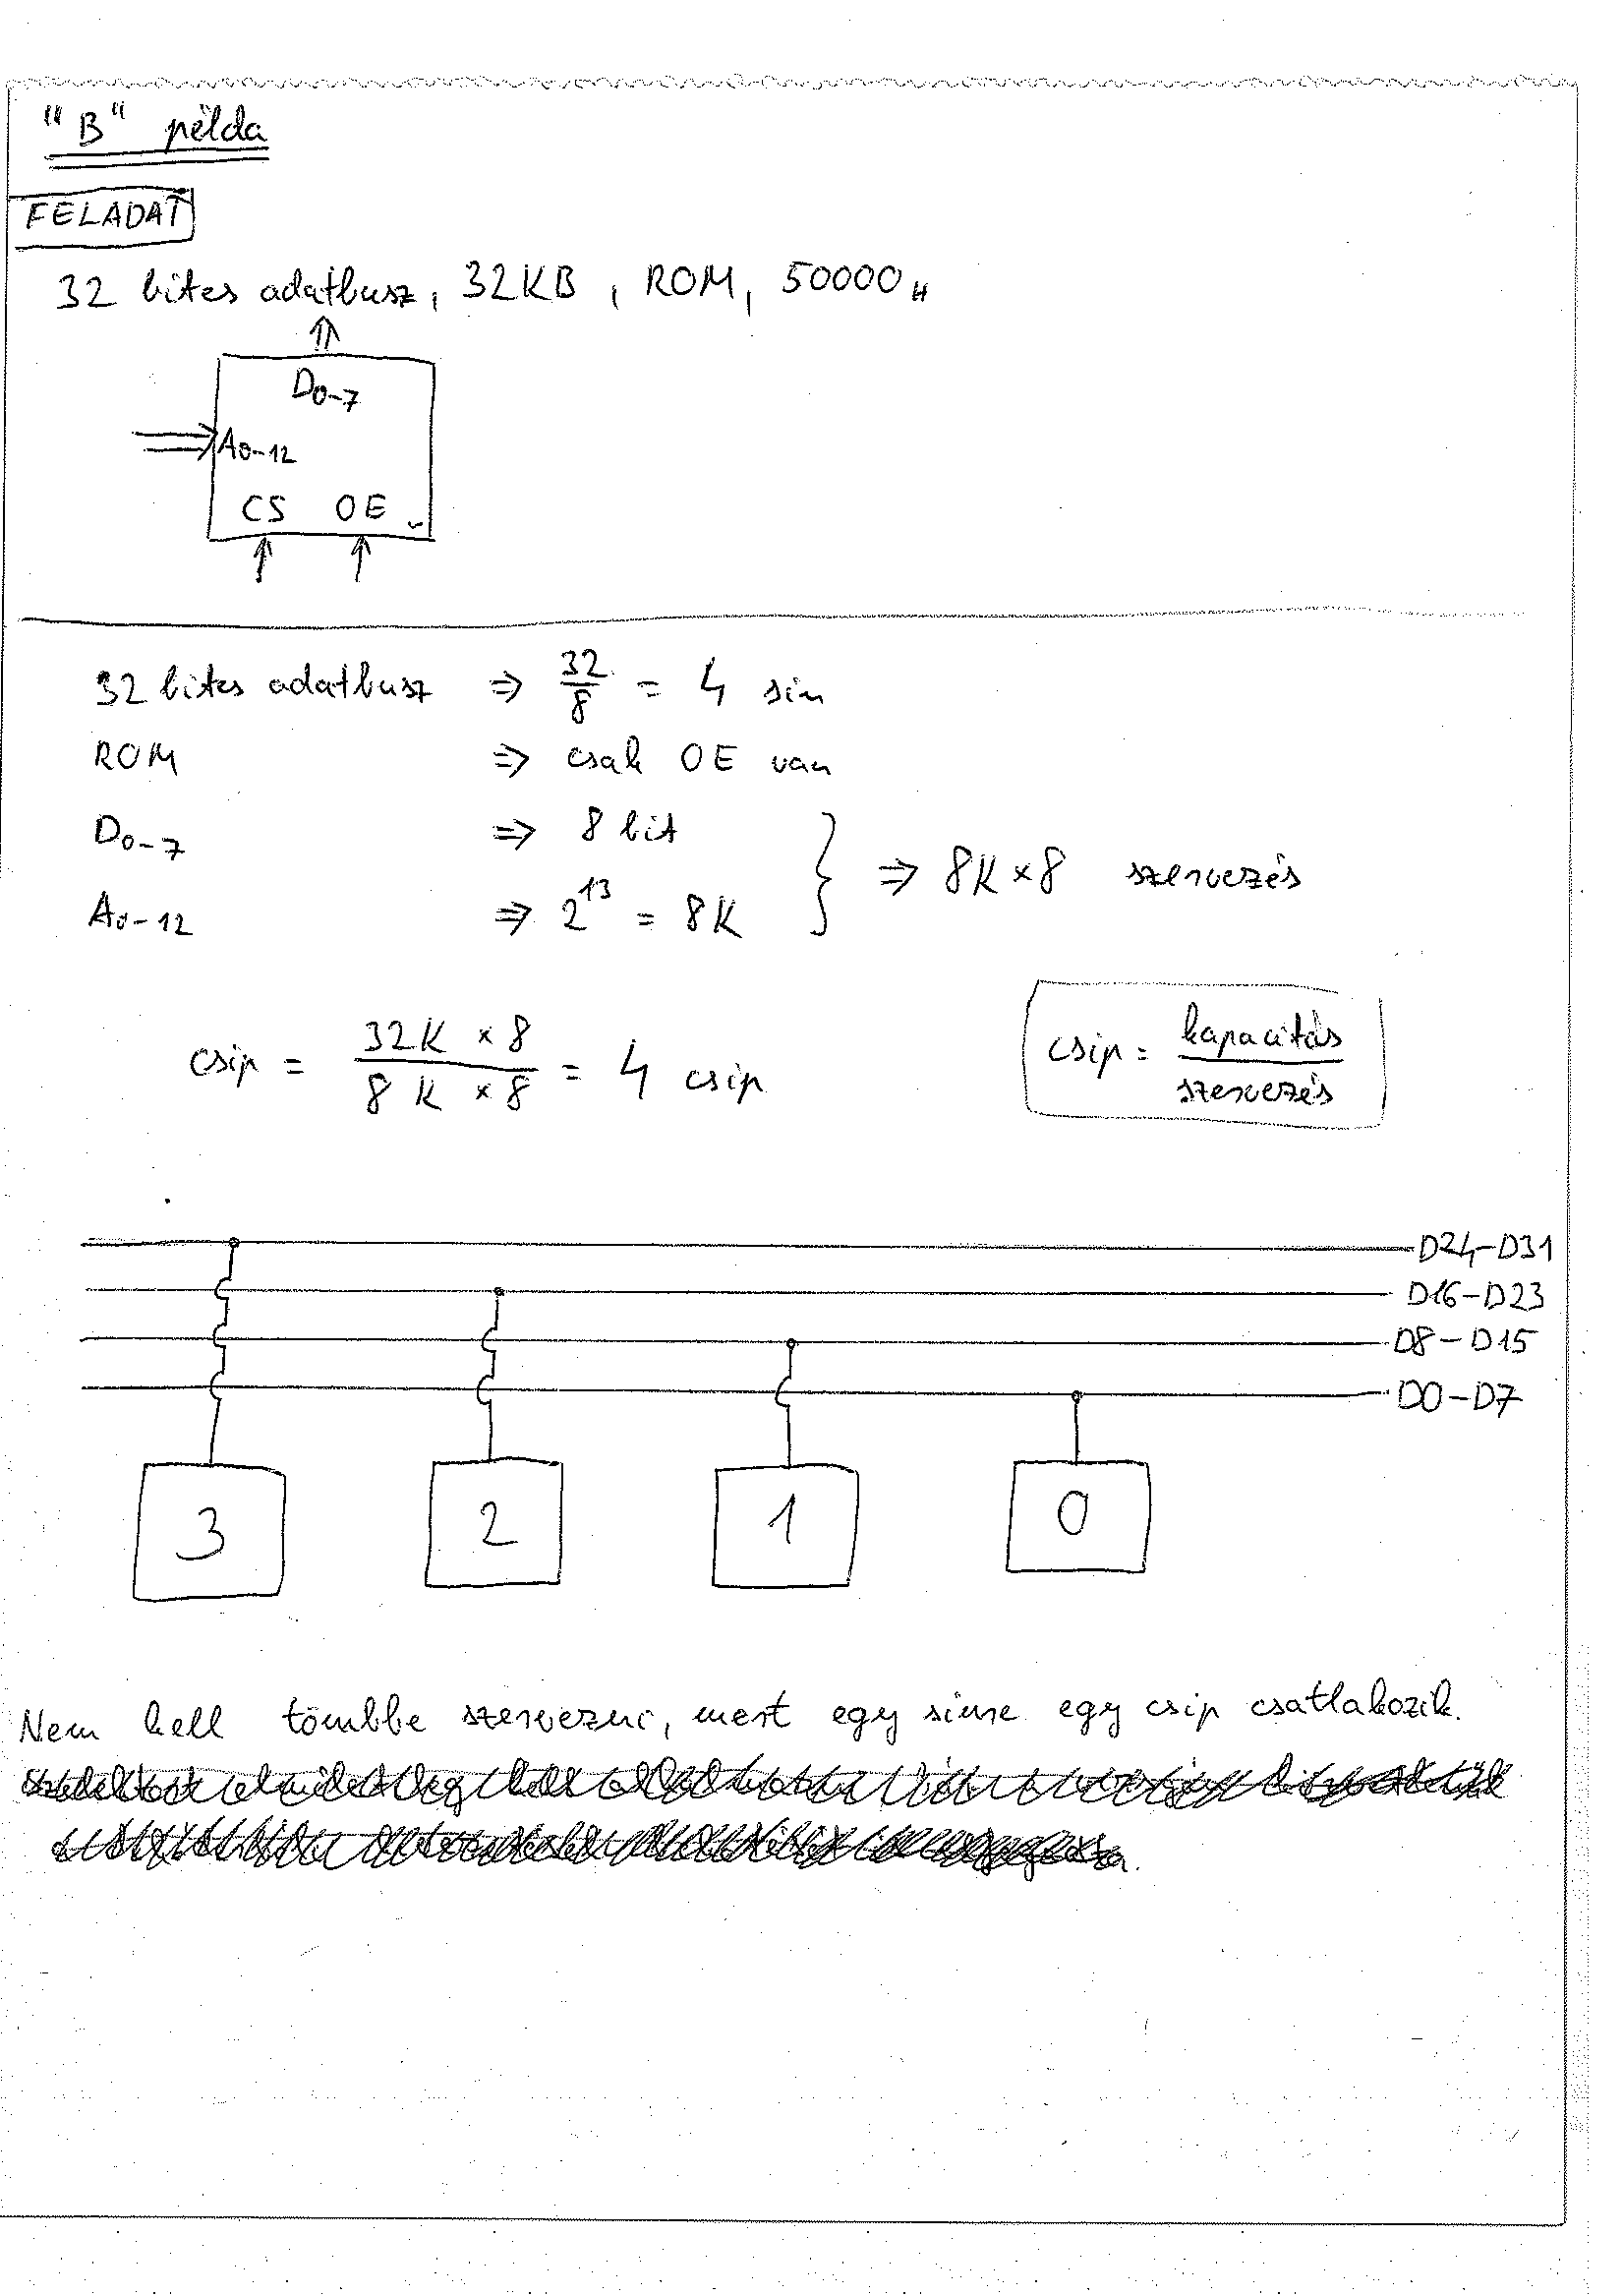 "B" példa
FELADAT
32 bites adatbusz, 32KB, ROM, 50000H
D0-7
A0-12
CS OE
32 bites adatbusz ⇒ 32/8 = 4 sín
ROM ⇒ csak OE van
D0-7 ⇒ 8 bit
A0-12 ⇒ 2^13 = 8K } ⇒ 8K×8 szervezés
csip = (32K × 8)/(8K × 8) = 4 csip
csip = kapacitás/szervezés
D24-D31
D16-D23
D8-D15
D0-D7
3 2 1 0
Nem kell tömbbe szervezni, mert egy sínre egy csip csatlakozik.